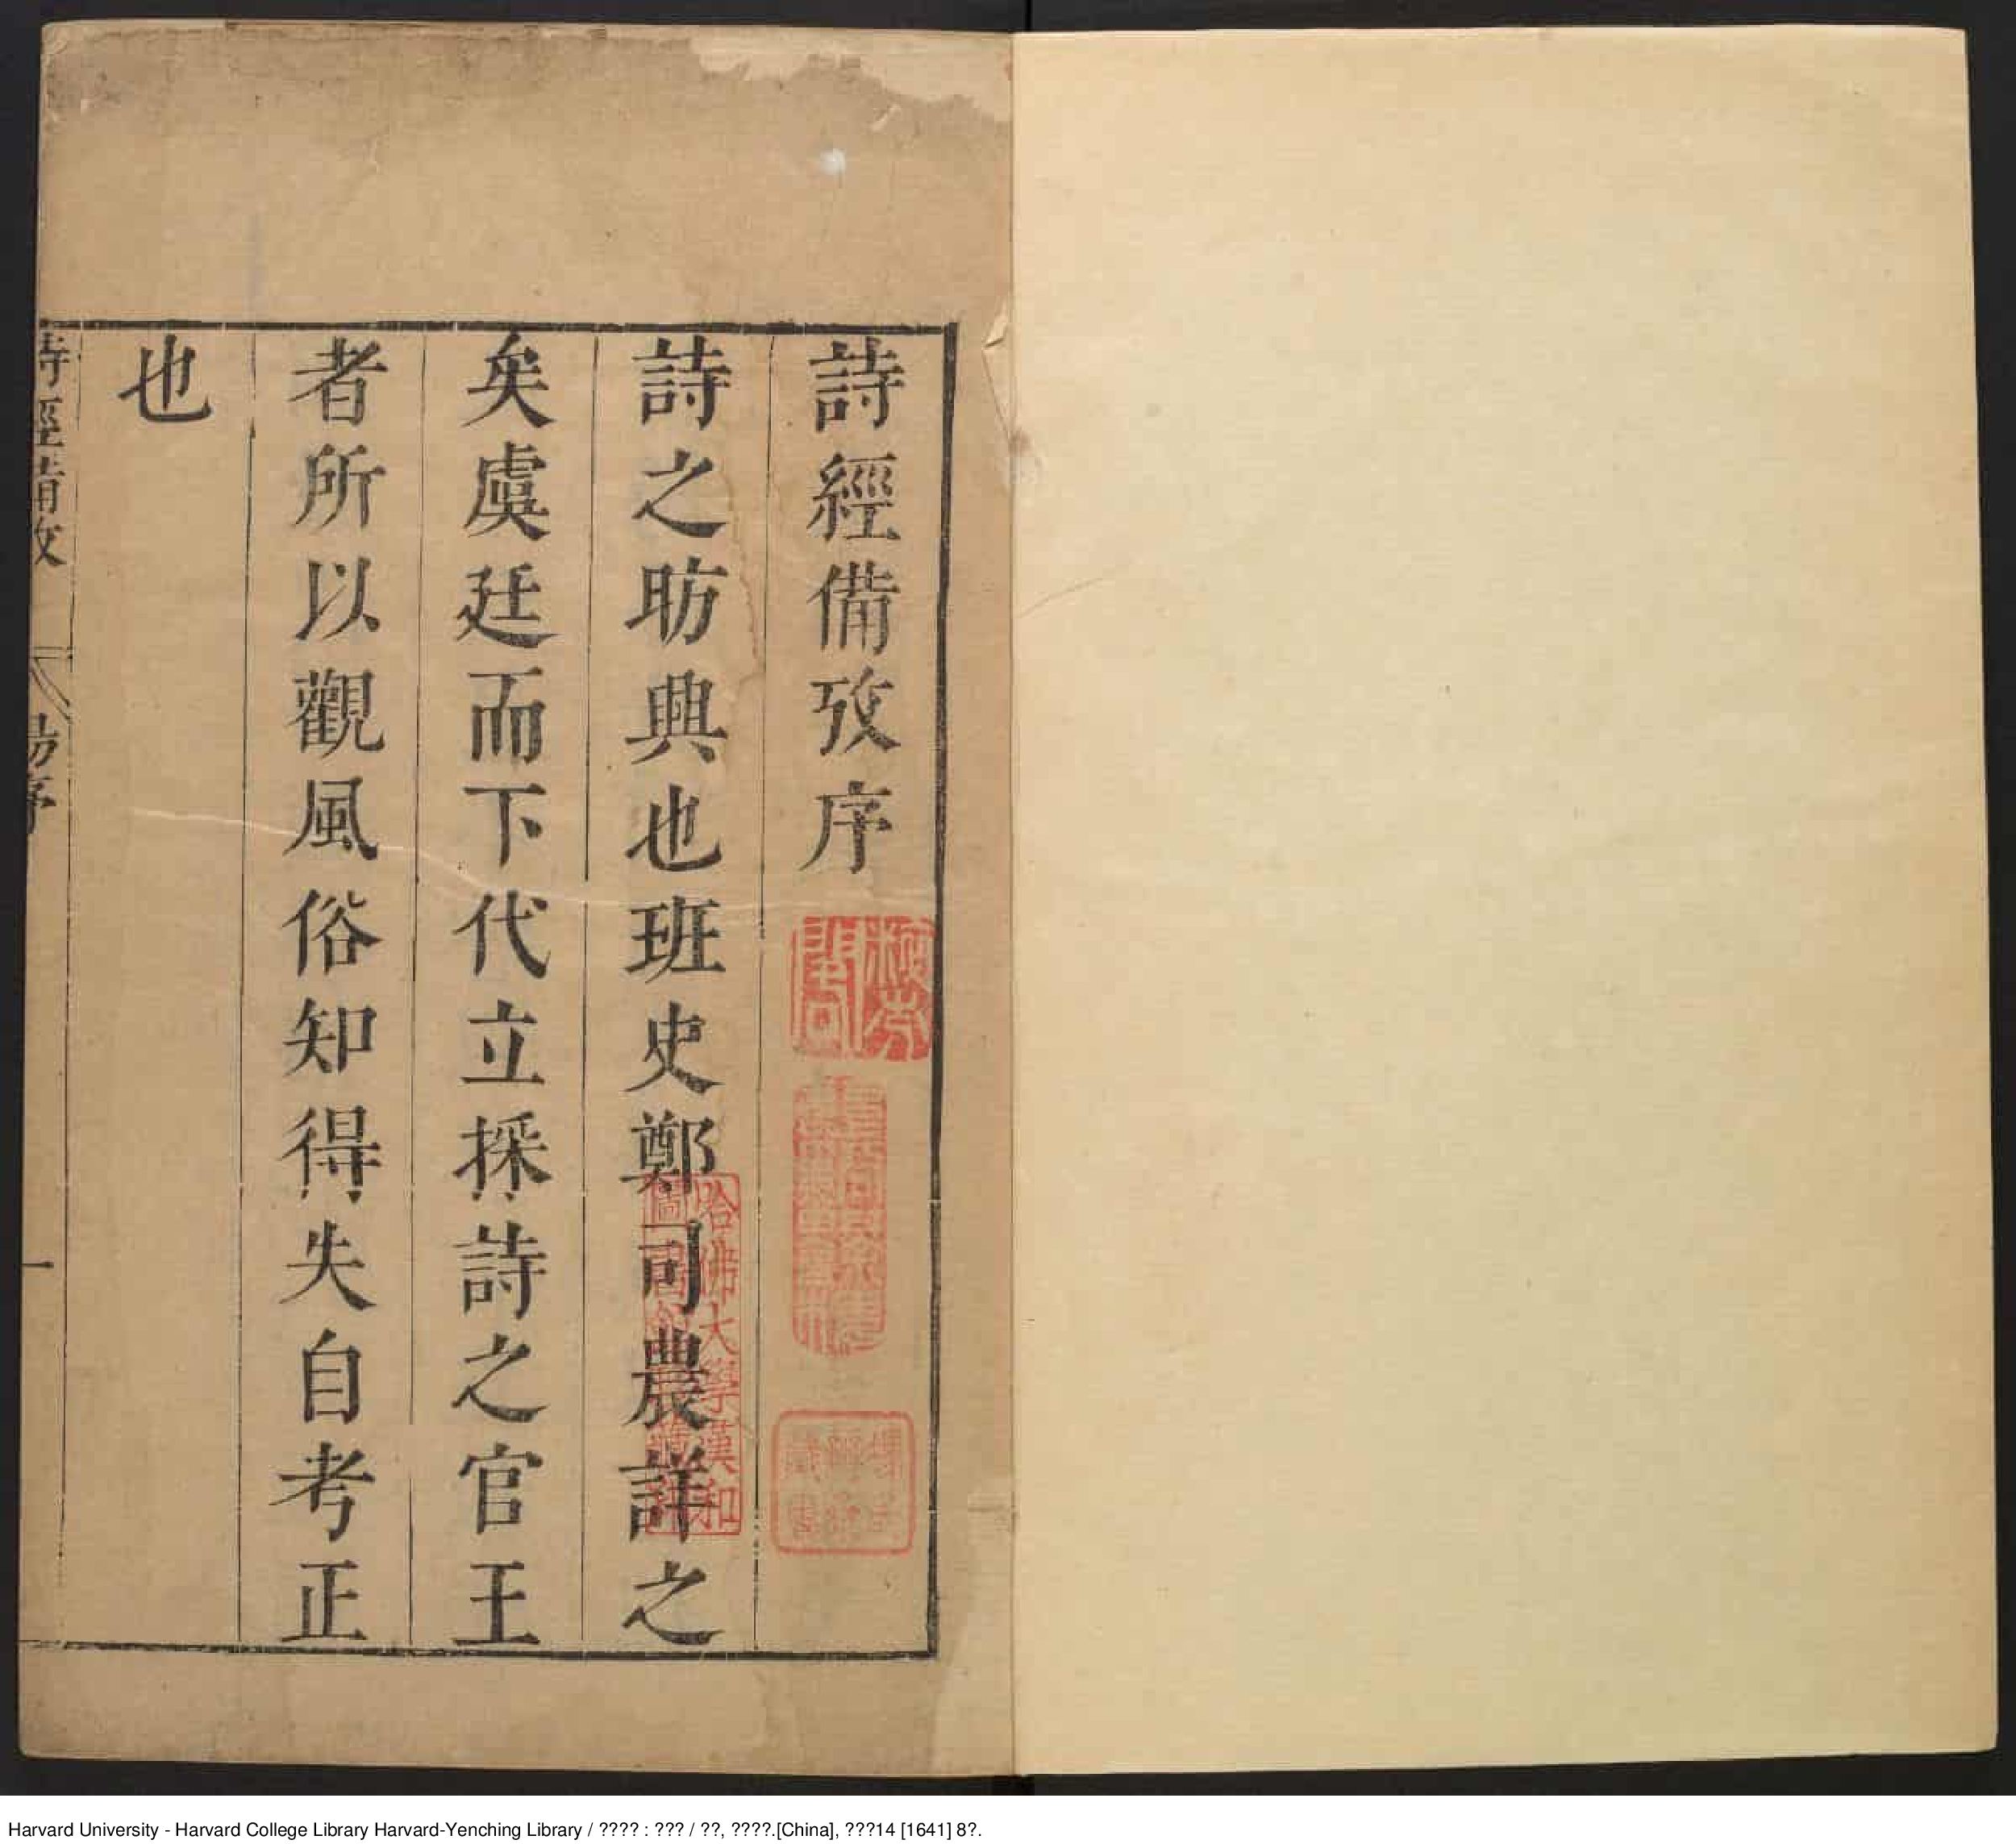 詩經備攷序
詩之昉興也班史鄭司農詳之
矣虞廷而下代立採詩之官王
者所以觀風俗知得失自考正
也
詩經備攷
序
一
哈佛大學漢和
圖書館
Harvard University - Harvard College Library Harvard-Yenching Library / ???? : ??? / ??, ????.[China], ???14 [1641] 8?.